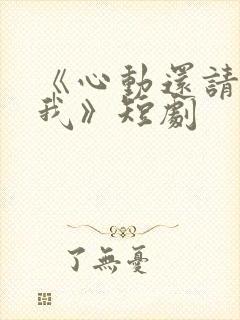 《心動還請
我》短劇
了無憂